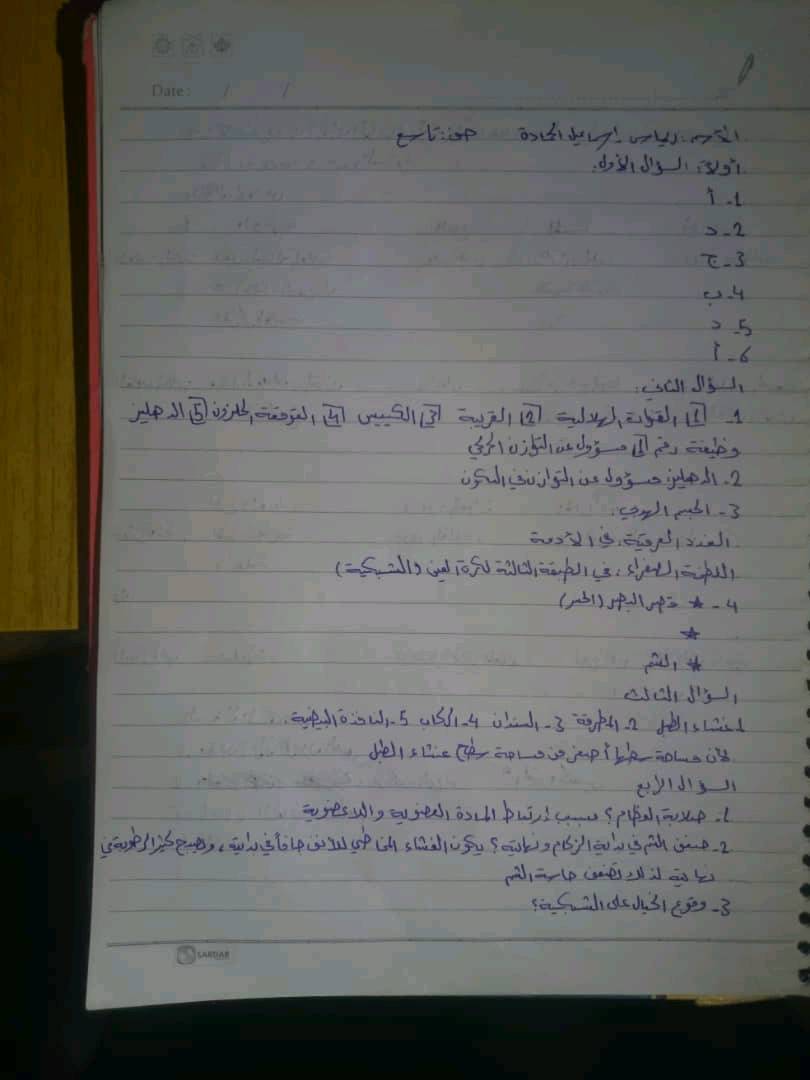 Date: / /
الاسم: إسماعيل الحادة صف: تاسع
أولاً: السؤال الأول:
1- أ
2- د
3- ج
4- ب
5- د
6- أ
السؤال الثاني:
1- 1 القنوات الهلالية 2 القريبة 3 الكييس 4 القوقعة الحلزون 5 الدهليز
وظيفة رقم 1 مسؤول عن التوازن الحركي
2- الدهليز: مسؤول عن التوازن في السكون
3- الجسم الهدبي:
الغدد العرقية: في الأدمة
اللطخة الصفراء: في الطبقة الثالثة لكرة العين (الشبكية)
4- * قصر البصر (الحسر)
*
* الشم
السؤال الثالث:
1- غشاء الطبل 2- المطرقة 3- السندان 4- الركاب 5- النافذة البيضية
لأن مساحة سطحها أصغر من مساحة سطح غشاء الطبل
السؤال الرابع
1- صلابة العظام؟ بسبب ارتباط المادة العضوية واللاعضوية
2- ضعف الشم في بداية الزكام ونهايته؟ يكون الغشاء المخاطي للأنف جافاً في بدايته، ويصبح كثير الرطوبة في
نهايته لذلك تضعف حاسة الشم
3- وقوع الخيال على الشبكية؟
SARDAR